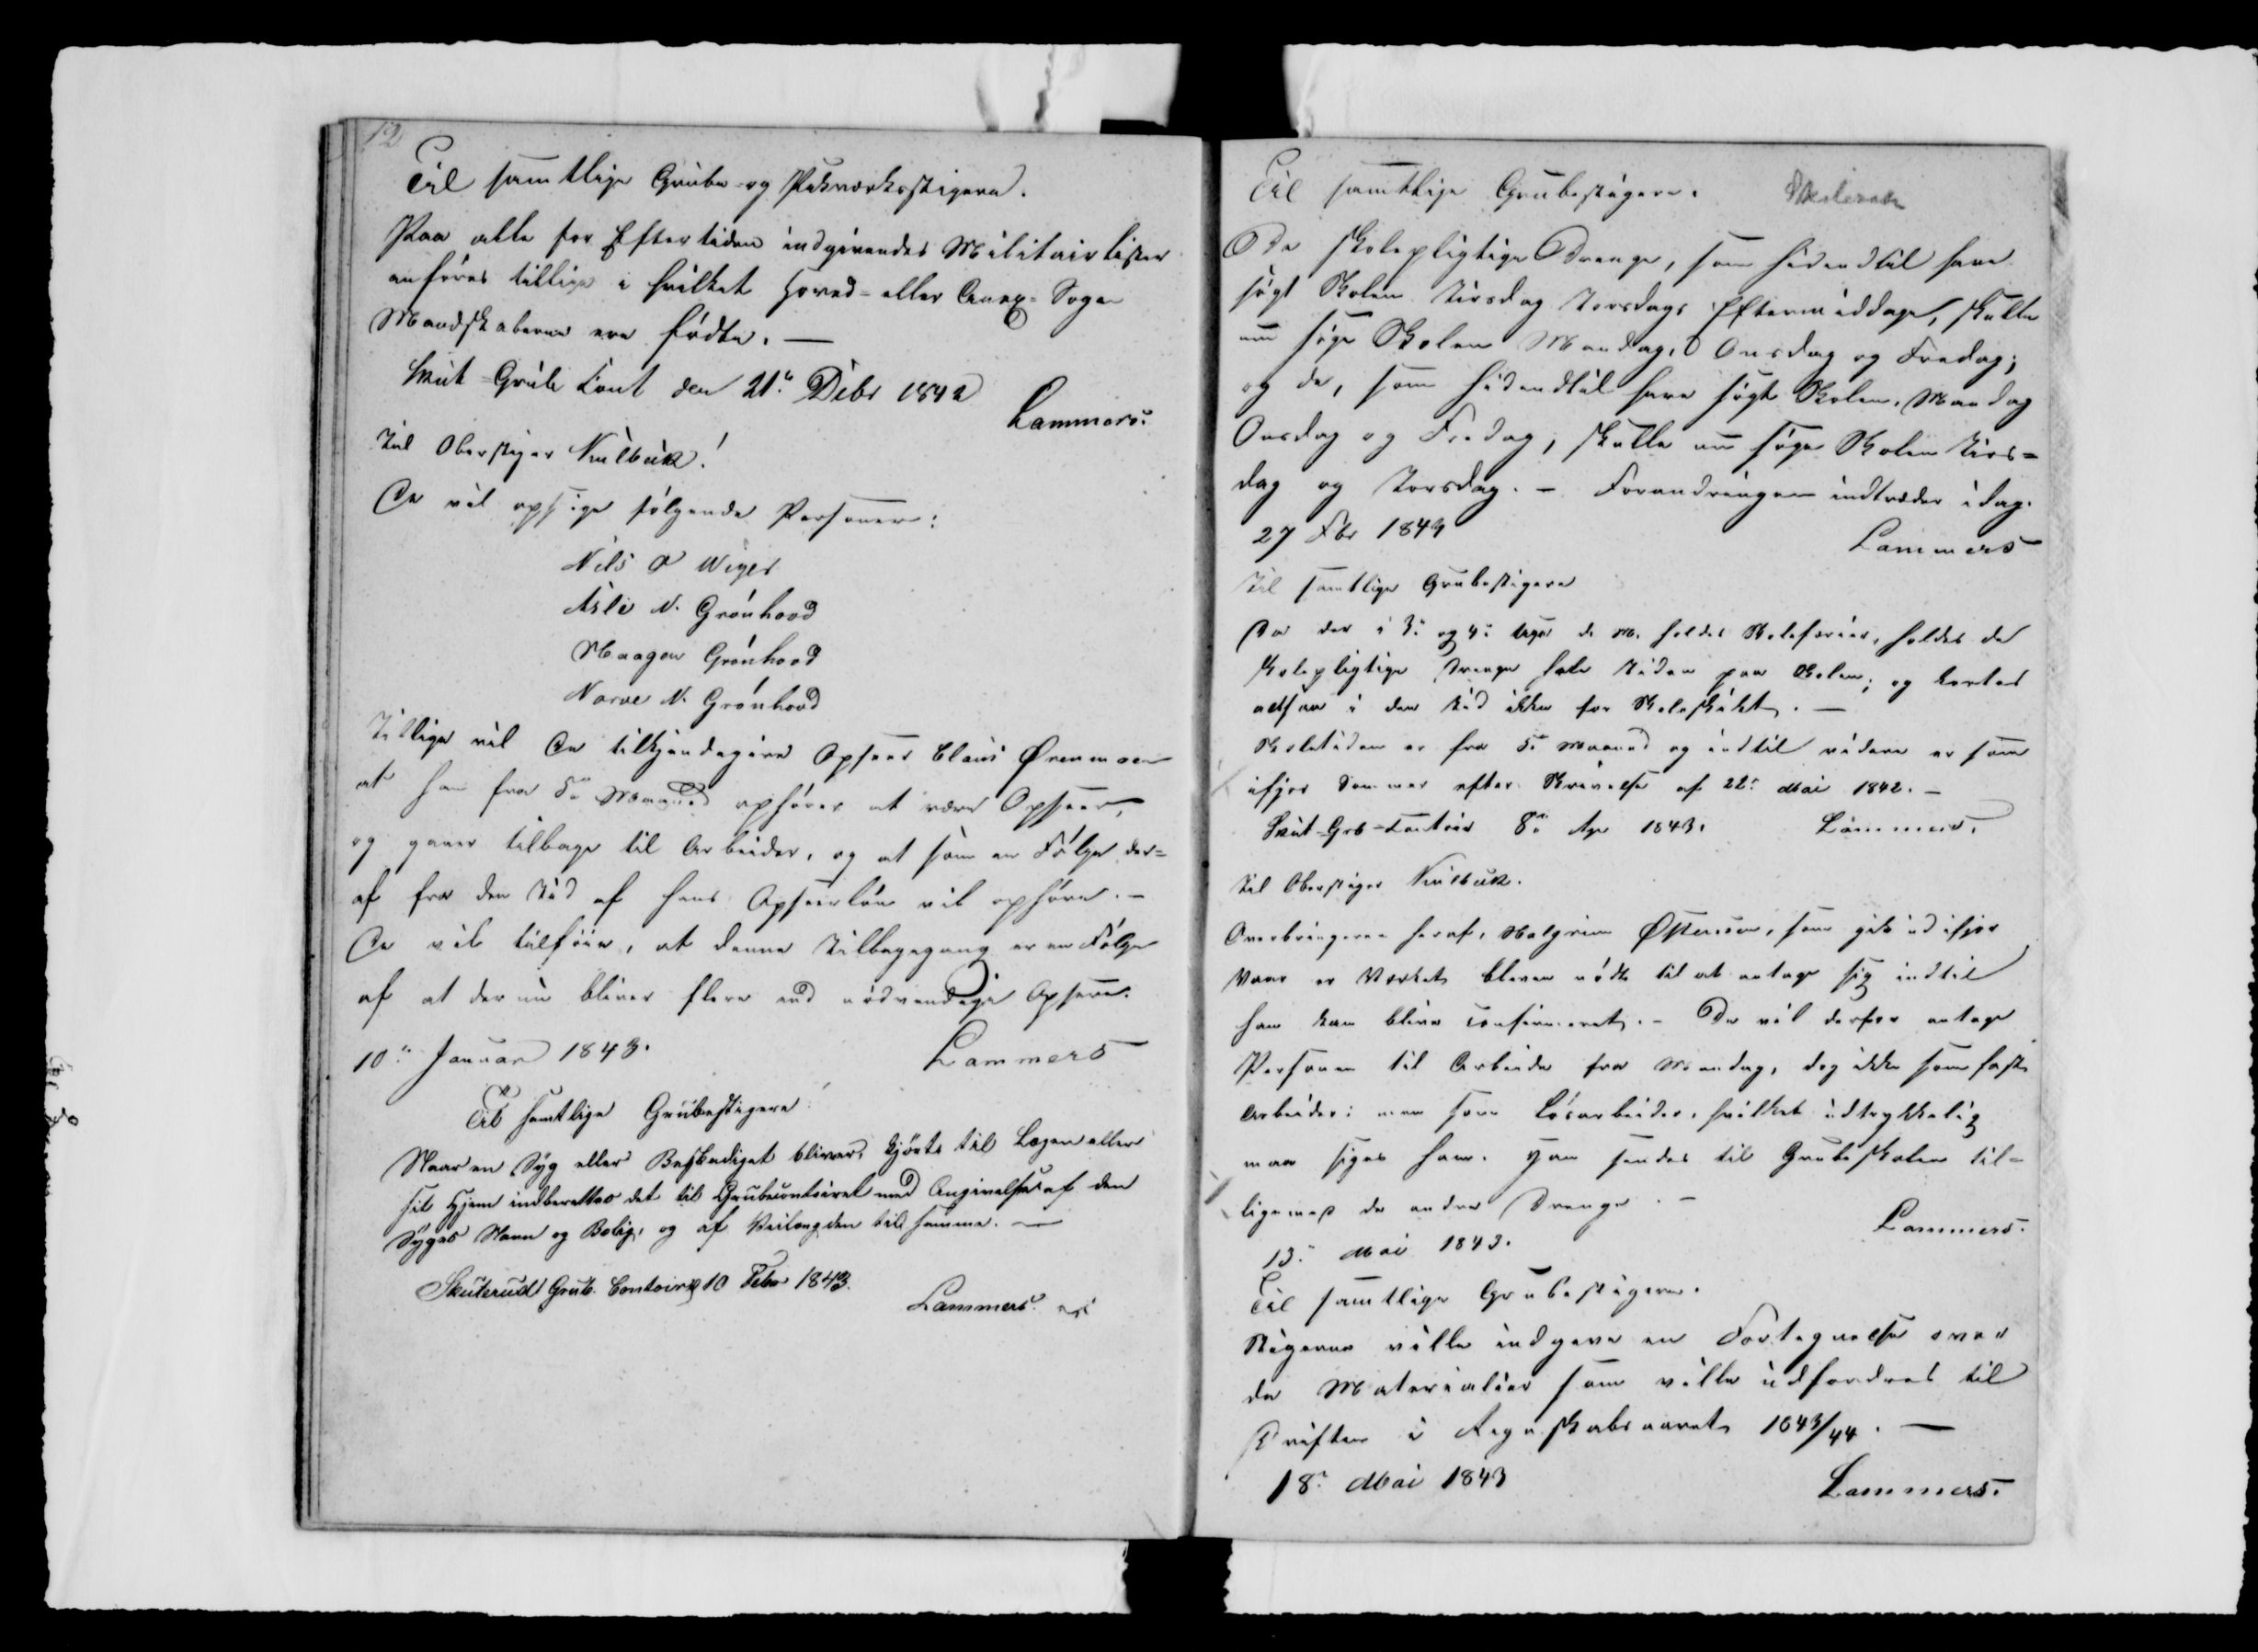 12
Til samtlige Grube- og Pukværksstigere.
Paa alle for Eftertiden indgivendes Militairlister
anføres tillige i hvilket Hoved- eller Anex-Sogn
Mandskaberne ere fødte. —
Skut-Grube Cont den 21de Debr 1842
Lammers.
Til Oberstiger Knilbuk!
De vil opsige følgende Personer:
Nils P Wiger
Asle N. Grønhovd
Haagen Grønhovd
Narve N. Grønhovd
Tillige vil De tilkjendegive Opseer Claus Ørenmoen
at han fra 5te Maaned ophører at være Opseer,
og gaaer tilbage til Arbeider, og at som en Følge der=
af fra den Tid af hans Opseerløn vil ophøre. —
De vil tilføie, at denne Tilbagegang er en Følge
af at der nu bliver flere end nødvendige Opseere.
10de Januar 1843.
Lammers
Til samtlige Grubestigere!
Naar en Syg eller Beskadiget bliver kjørt til Lægen eller
sit Hjem indberettes det til Grubecontoiret med Angivelse af den
Syges Navn og Bolig, og af Veilængden til samme. —
Skuterud Grub. Contoir 10 Febr 1843.
Lammers
Til samtlige Grubestigere. Skuterud
De skolepligtige Drenge, som hidendtil have
søgt Skolen Tirsdag Torsdags Eftermiddage, skulle
nu søge Skolen Mandag, Onsdag og Fredag;
og de, som hidendtil have søgt Skolen Mandag
Onsdag og Fredag, skulle nu søge Skolen Tirs=
dag og Torsdag. — Forandringen indtræder idag.
27 Fbr 1843
Lammers
Til samtlige Grubestigere
Da der i 3de og 4de Uge d. M. holdes Skoleferier, holdes de
skolepligtige Drenge hele Tiden paa Skolen; og kortes
altsaa i den Tid ikke for Skoleskikt. —
Skoletiden er fra 5te Maaned og indtil videre er som
ifjor Sommer efter Skrivelse af 22de Mai 1842. —
Skut-Grb-Contoir 8de Apr 1843.
Lammers.
Til Oberstiger Knilbuk.
Overbringeren heraf, Halgrim Østensen, som gik ud ifjor
Vaar er Værket bleven nødt til at antage sig indtil
han kan blive confirmeret. — De vil derfor antage
Personen til Arbeide fra Mandag, dog ikke som fast
Arbeider; men som Løsarbeider, hvilket udtrykkelig
maa siges ham. Han sendes til Grubeskolen til=
ligemed de andre Drenge. —
13de Mai 1843.
Lammers.
Til samtlige Grubestigere.
Stigerne ville indgive en Fortegnelse over
de Materialier som ville udfordres til
Driften i Regnskabsaaret 1843/44. —
18de Mai 1843
Lammers.